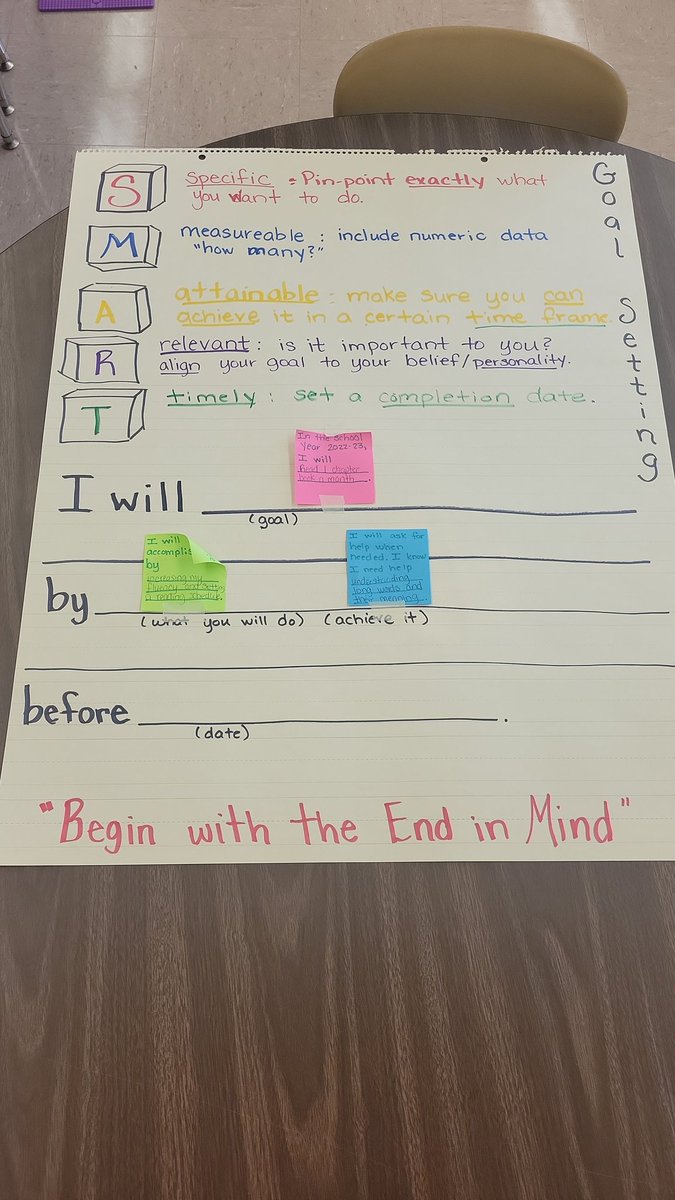 S
Specific = Pin-point exactly what
you want to do.
M
measureable : include numeric data
"how many?"
A
attainable : make sure you can
achieve it in a certain time frame.
R
relevant : is it important to you?
align your goal to your belief/personality.
T
timely : set a completion date.
Goal Setting
In the school
Year 2022-23,
I will
Read 1 chapter
book a month.
I will
(goal)
I will
by
increasing my
fluency and
a reading schedule.
I will ask for
help when
needed. I know
I need help
understanding
long words and
their meaning.
by
(what you will do) (achieve it)
before
(date)
"Begin with the End in Mind"